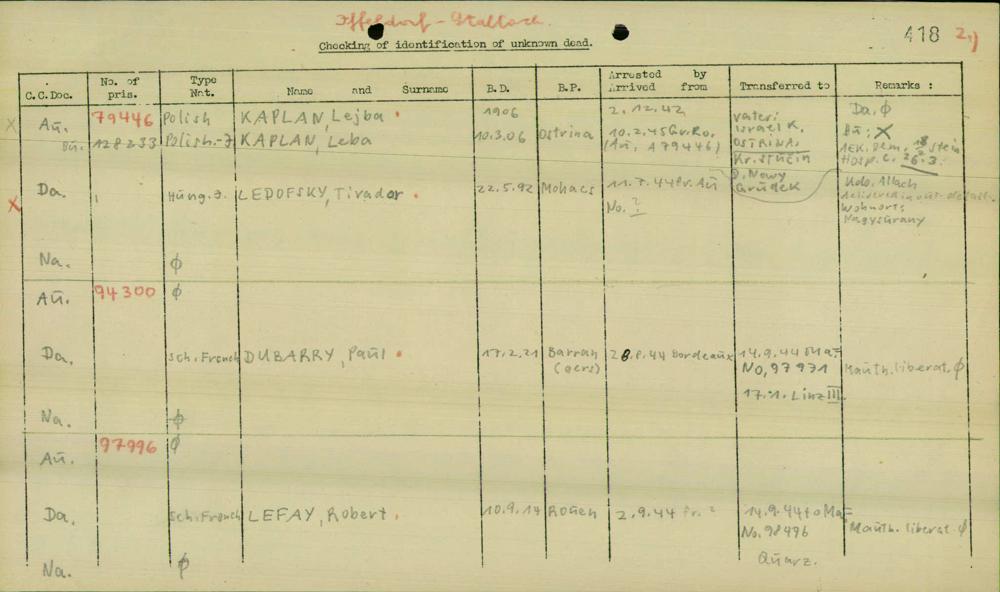 Iffeldorf - Staltach.
418 2,)
Checking of identification of unknown dead.
C.C.Doc. No. of pris. Type Nat. Name and Surname B.D. B.P. Arrested Arrived by from Transferred to Remarks :
Aū. 79446 Polish KAPLAN, Lejba 1906 2.12.42 Vater: Da. ϕ
Bū. 128233 Polish-J KAPLAN, Leba 10.3.06 Ostrina 10.2.45 Gr.Ro. Israel K. Bū: X
(Aū. A79446) OSTRINA. AEK. Dem. stein
Kr. Stučin Hosp. C. 26.3.
Da. Hung.J. LEDOFSKY, Tivador 22.5.92 Mohacs 11.7.44 Fr. Aū D. Nowy Kdo. Allach
No. ? Grūdek delivered in
Wohnort:
Nagysūrany
Na. ϕ
Aū. 94300 ϕ
Da. Sch. French DUBARRY, Paūl 17.2.21 Barran 28.8.44 Bordeaūx 14.9.44 Ma= Maūth. liberat. ϕ
(Gers) No, 97971
17.1. Linz III.
Na. ϕ
Aū. 97996 ϕ
Da. Sch. French LEFAY, Robert 10.9.14 Roūen 2.9.44 Fr. ? 14.9.44 to Ma= Maūth. liberat. ϕ
No. 98496
Qūarz.
Na. ϕ